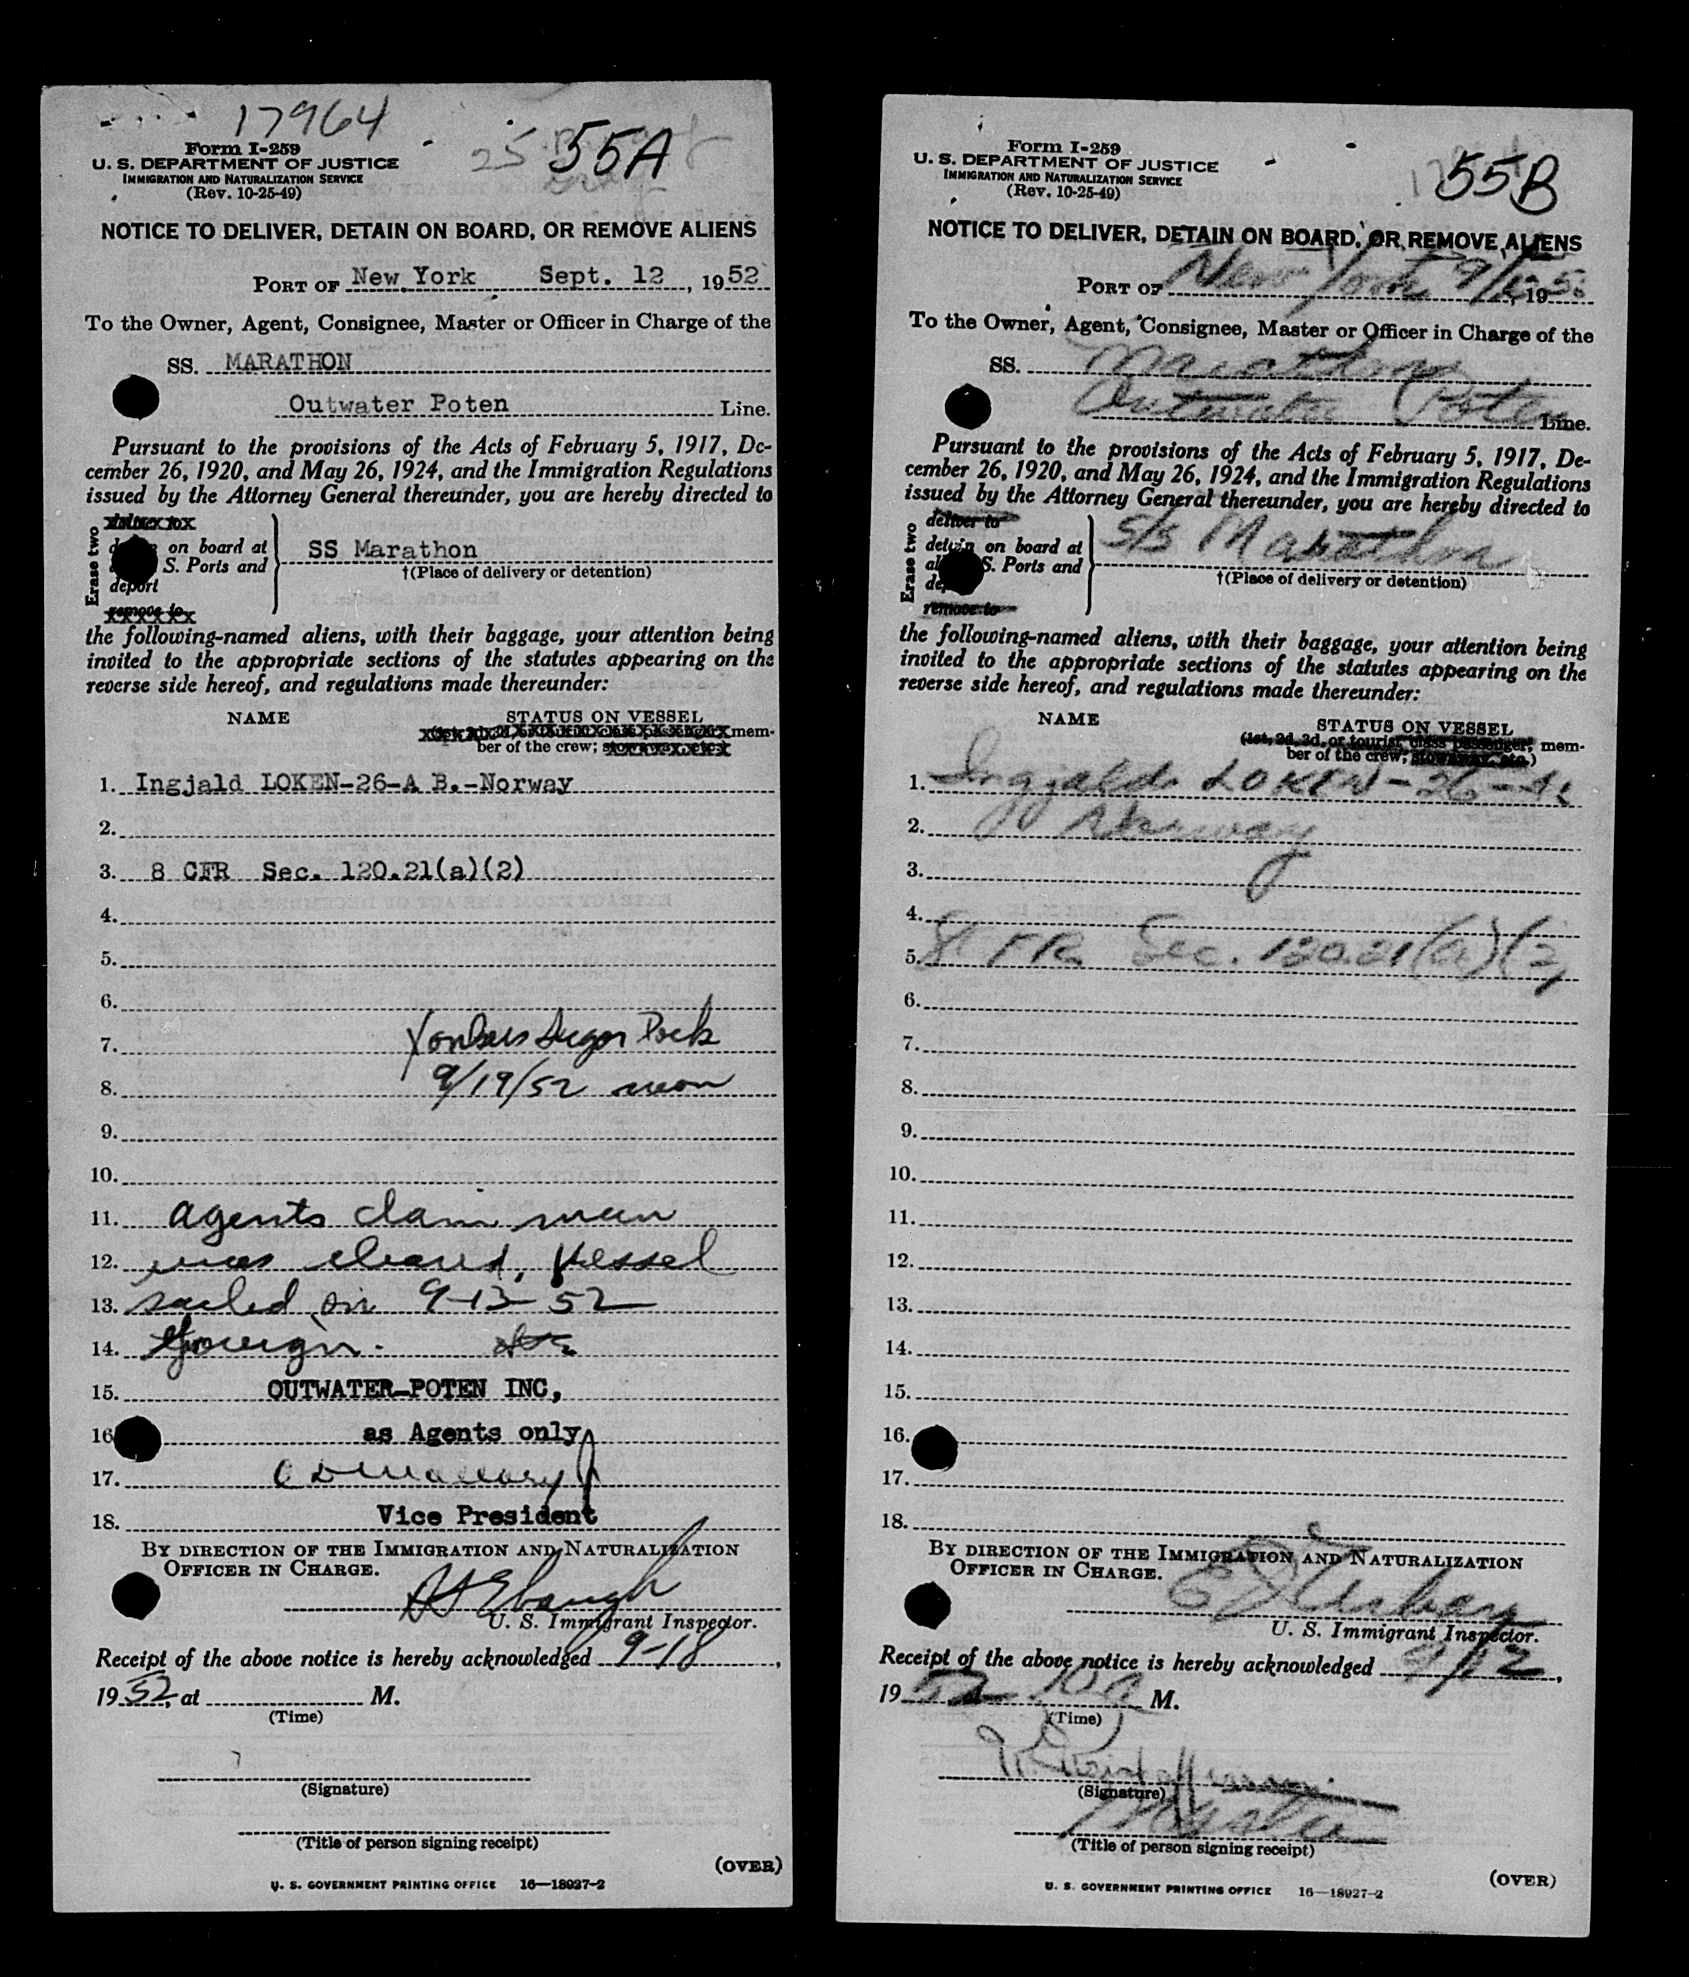 17964
25
55A
Form I-259
U. S. DEPARTMENT OF JUSTICE
IMMIGRATION AND NATURALIZATION SERVICE
(Rev. 10-25-49)
NOTICE TO DELIVER, DETAIN ON BOARD, OR REMOVE ALIENS
PORT OF New York Sept. 12, 1952
To the Owner, Agent, Consignee, Master or Officer in Charge of the
SS. MARATHON
Outwater Poten Line.
Pursuant to the provisions of the Acts of February 5, 1917, De-
cember 26, 1920, and May 26, 1924, and the Immigration Regulations
issued by the Attorney General thereunder, you are hereby directed to
Erase two
on board at
S. Ports and
deport
remove to
SS Marathon
†(Place of delivery or detention)
the following-named aliens, with their baggage, your attention being
invited to the appropriate sections of the statutes appearing on the
reverse side hereof, and regulations made thereunder:
NAME STATUS ON VESSEL
mem-
ber of the crew;
1. Ingjald LOKEN-26-A B.-Norway
2.
3. 8 CFR Sec. 120.21(a)(2)
4.
5.
6.
7. Yonkers Sugar Dock
8. 9/19/52 noon
9.
10.
11. Agents claim man
12. was cleared, Vessel
13. sailed on 9-13-52
14. foreign.
15. OUTWATER-POTEN INC,
16. as Agents only
17.
18. Vice President
BY DIRECTION OF THE IMMIGRATION AND NATURALIZATION
OFFICER IN CHARGE.
U. S. Immigrant Inspector.
Receipt of the above notice is hereby acknowledged 9-18,
1952, at M.
(Time)
(Signature)
(Title of person signing receipt)
(OVER)
U. S. GOVERNMENT PRINTING OFFICE 16—18927-2
55B
Form I-259
U. S. DEPARTMENT OF JUSTICE
IMMIGRATION AND NATURALIZATION SERVICE
(Rev. 10-25-49)
NOTICE TO DELIVER, DETAIN ON BOARD, OR REMOVE ALIENS
PORT OF New York 9/12, 1952
To the Owner, Agent, Consignee, Master or Officer in Charge of the
SS. Marathon
Outwater Poten Line.
Pursuant to the provisions of the Acts of February 5, 1917, De-
cember 26, 1920, and May 26, 1924, and the Immigration Regulations
issued by the Attorney General thereunder, you are hereby directed to
Erase two
deliver to
detain on board at
S. Ports and
remove to
S/S Marathon
†(Place of delivery or detention)
the following-named aliens, with their baggage, your attention being
invited to the appropriate sections of the statutes appearing on the
reverse side hereof, and regulations made thereunder:
NAME STATUS ON VESSEL
(1st, 2d, 3d, or tourist class passenger; mem-
ber of the crew; stowaway, etc.)
1. Ingjald LOKEN-26-
2. Norway
3.
4.
5. 8 CFR Sec. 120.21(a)(2)
6.
7.
8.
9.
10.
11.
12.
13.
14.
15.
16.
17.
18.
BY DIRECTION OF THE IMMIGRATION AND NATURALIZATION
OFFICER IN CHARGE.
U. S. Immigrant Inspector.
Receipt of the above notice is hereby acknowledged 9/12,
1952 M.
(Time)
(Signature)
Master
(Title of person signing receipt)
(OVER)
U. S. GOVERNMENT PRINTING OFFICE 16—18927-2